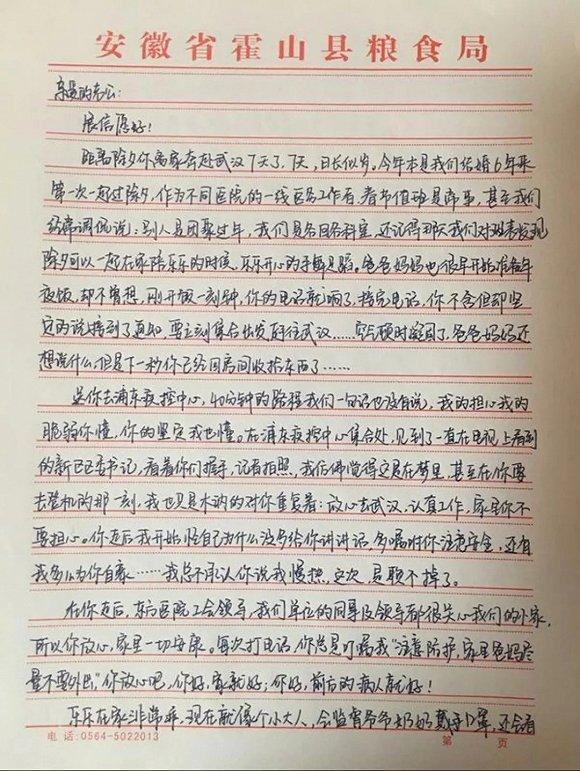 安徽省霍山县粮食局
亲爱的老公:
展信愿好!
距离除夕你离家奔赴武汉7天了,7天,日长似岁。今年本是我们结婚6年来
第一次一起过除夕,作为不同医院的一线医务工作者,春节值班是常事,甚至我们
经常调侃说:别人是团聚过年,我们是各回各科室,还记得那天我们对班表发现
除夕可以一起在家陪乐乐的时候,乐乐开心的手舞足蹈。爸爸妈妈也很早开始准备年
夜饭,却不曾想,刚开饭一刻钟,你的电话就响了,接完电话,你不舍但却坚
定的说:接到了通知,要立刻集合出发前往武汉……空气顿时凝固了,爸爸妈妈还
想说什么,但是下一秒你已经回房间收拾东西了……
送你去浦东疾控中心,40分钟的路程我们一句话也没有说,我的担心我的
脆弱你懂,你的坚定我也懂。在浦东疾控中心集合处,见到了一直在电视上看到
的新区区委书记,看着你们握手,记者拍照,我仿佛觉得这是在梦里,甚至在你要
去登机的那一刻,我也只是木讷的对你重复着:放心去武汉,认真工作,家里你不
要担心。你走后我开始怪自己为什么没多给你讲讲话,多嘱咐你注意安全,还有
我多么为你自豪……我总不承认你说我慢热,这次,是赖不掉了。
在你走后,东方医院工会领导,我们单位的同事及领导都很关心我们的小家,
所以你放心,家里一切安康。每次打电话,你总是叮嘱我"注意防护,家里爸妈尽
量不要外出"你放心吧,你好,家就好;你好,前方的病人就好!
乐乐在家非常乖,现在就像个小大人,会监督爷爷奶奶戴好口罩,还会看
电话:0564-5022013 第 页